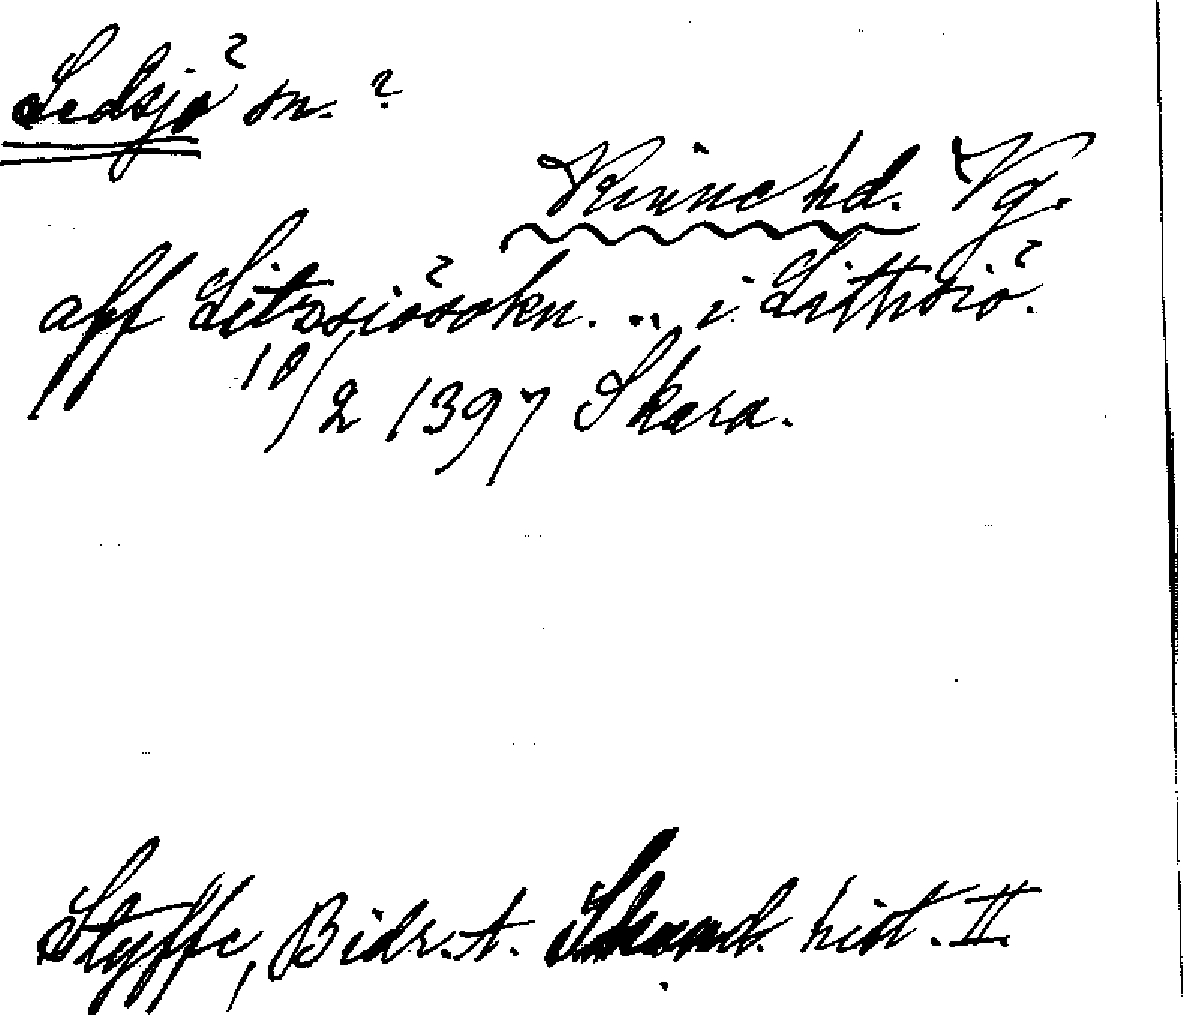 Ledsjö sn. ?
Kinne hd. Vg.
aff Litzsiösokn. .. i Lithsiö.
10/2 1397 Skara.
Styffe, Bidr. t. Skand. hist. II.